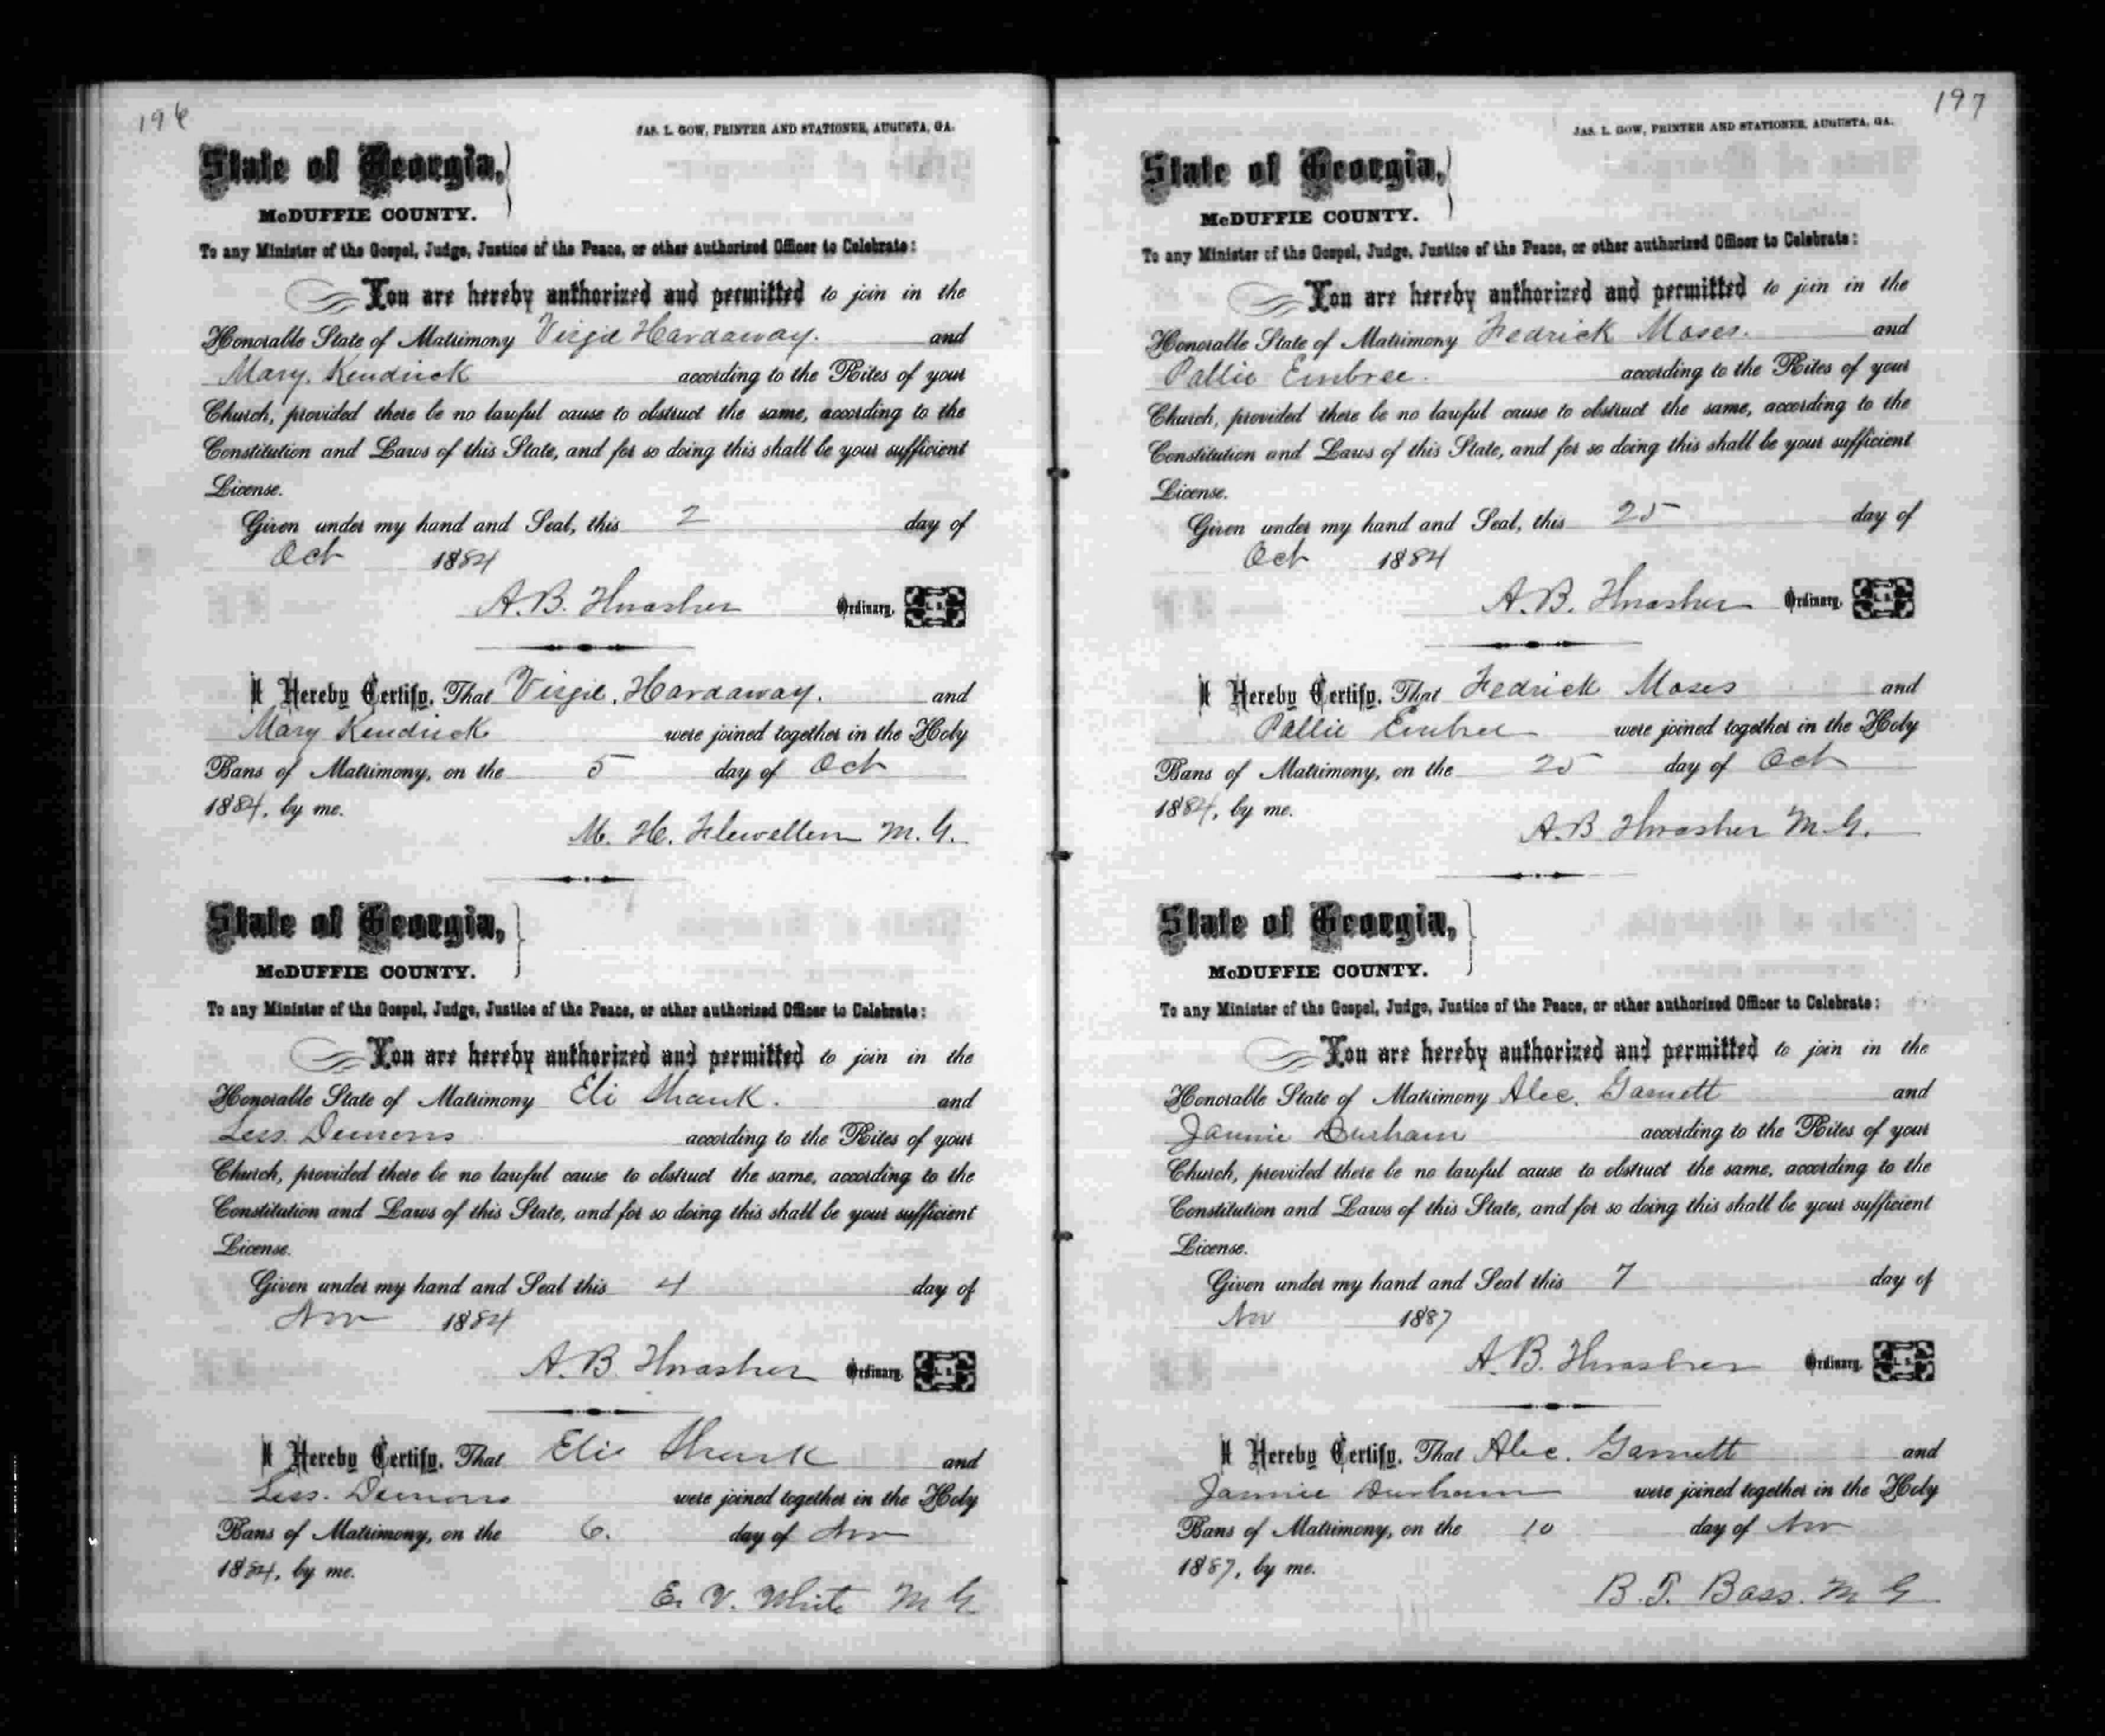 196
JAS. L. GOW, PRINTER AND STATIONER, AUGUSTA, GA.
State of Georgia,
McDUFFIE COUNTY.
To any Minister of the Gospel, Judge, Justice of the Peace, or other authorized Officer to Celebrate:
You are hereby authorized and permitted to join in the
Honorable State of Matrimony Virgil Hardaway. and
Mary. Kendrick according to the Rites of your
Church, provided there be no lawful cause to obstruct the same, according to the
Constitution and Laws of this State, and for so doing this shall be your sufficient
License.
Given under my hand and Seal, this 2 day of
Oct 1884
A. B. Thrasher Ordinary. L. S.
I Hereby Certify. That Virgil. Hardaway. and
Mary Kendrick were joined together in the Holy
Bans of Matrimony, on the 5 day of Oct
1884, by me.
M. H. Flewellen M. G.
State of Georgia,
McDUFFIE COUNTY.
To any Minister of the Gospel, Judge, Justice of the Peace, or other authorized Officer to Celebrate:
You are hereby authorized and permitted to join in the
Honorable State of Matrimony Eli Shank. and
Less. Demons according to the Rites of your
Church, provided there be no lawful cause to obstruct the same, according to the
Constitution and Laws of this State, and for so doing this shall be your sufficient
License.
Given under my hand and Seal this 4 day of
Nov 1884
A. B. Thrasher Ordinary. L. S.
I Hereby Certify. That Eli Shank and
Less. Demons were joined together in the Holy
Bans of Matrimony, on the 6. day of Nov
1884, by me.
E. V. White M G
197
JAS. L. GOW, PRINTER AND STATIONER, AUGUSTA, GA.
State of Georgia,
McDUFFIE COUNTY.
To any Minister of the Gospel, Judge, Justice of the Peace, or other authorized Officer to Celebrate:
You are hereby authorized and permitted to join in the
Honorable State of Matrimony Fedrick Moses. and
Pallie Embree. according to the Rites of your
Church, provided there be no lawful cause to obstruct the same, according to the
Constitution and Laws of this State, and for so doing this shall be your sufficient
License.
Given under my hand and Seal, this 25 day of
Oct 1884
A. B. Thrasher Ordinary. L. S.
I Hereby Certify. That Fedrick Moses and
Pallie Embree were joined together in the Holy
Bans of Matrimony, on the 25 day of Oct
1884, by me.
A. B Thrasher M. G.
State of Georgia,
McDUFFIE COUNTY.
To any Minister of the Gospel, Judge, Justice of the Peace, or other authorized Officer to Celebrate:
You are hereby authorized and permitted to join in the
Honorable State of Matrimony Alec. Garnett and
Jannie Durham according to the Rites of your
Church, provided there be no lawful cause to obstruct the same, according to the
Constitution and Laws of this State, and for so doing this shall be your sufficient
License.
Given under my hand and Seal this 7 day of
Nov 1887
A. B. Thrasher Ordinary. L. S.
I Hereby Certify. That Alec. Garnett and
Jannie Durham were joined together in the Holy
Bans of Matrimony, on the 10 day of Nov
1887, by me.
B. T. Bass. M G